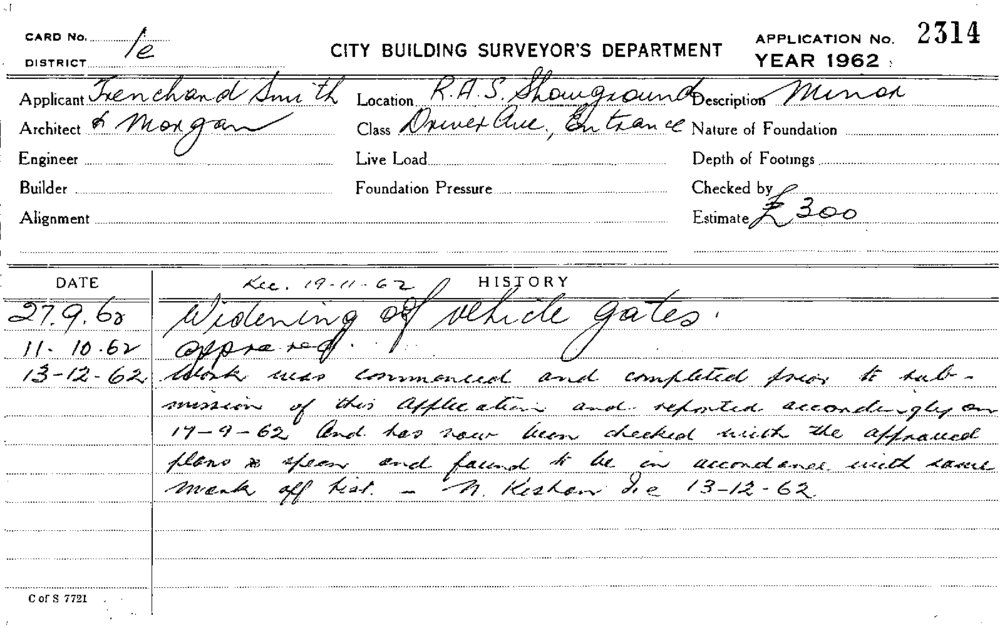 CARD No. 1e
DISTRICT
CITY BUILDING SURVEYOR'S DEPARTMENT
APPLICATION No. 2314
YEAR 1962
Applicant Trenchard Smith Location R.A.S. Showground Description Minor
Architect & Morgan Class Driver Ave., Entrance Nature of Foundation
Engineer Live Load Depth of Footings
Builder Foundation Pressure Checked by
Alignment Estimate £300
DATE Rec. 19-11-62 HISTORY
27.9.62 Widening of vehicle gates.
11-10-62 approved.
13-12-62 Work was commenced and completed prior to sub-
mission of this application and reported accordingly on
17-9-62 and has now been checked with the approved
plans & specs and found to be in accordance with same
mark off list. - 13-12-62
C of S 7721